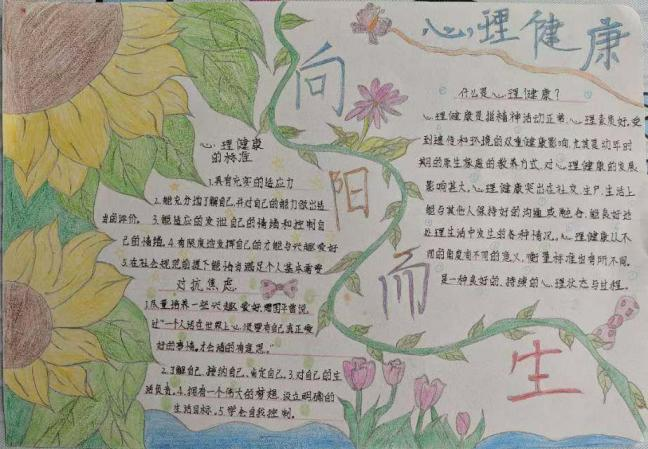 心理健康
向
阳
而
生
什么是心理健康？
心理健康是指精神活动正常、心理素质好，受
到遗传和环境的双重健康影响，尤其是幼年时
期的原生家庭的教养方式，对心理健康的发展
影响甚大。心理健康突出在社交、生产、生活上
能与其他人保持好的沟通或融合，能良好地
处理生活中发生的各种情况。心理健康从不
同的角度有不同的定义，衡量标准也有所不同。
是一种良好的、持续的心理状态与过程。
心理健康
的标准
1.具有充实的适应力
2.能充分地了解自己，并对自己的能力做出适
当的评价。3.能适应的发泄自己的情绪和控制自
己的情绪。4.有限度地发挥自己的才能与兴趣爱好
5.在社会规范前提下能恰当满足个人基本需要
对抗焦虑
1.尽量培养一些兴趣爱好，
过"一个人活在世界上心须要有自己真正爱
好的事情，才会活的有意思。"
2.了解自己、接纳自己、肯定自己。3.对自己的生
活负责。4.拥有一个伟大的梦想，设立明确的
生活目标。5.学会自我控制。